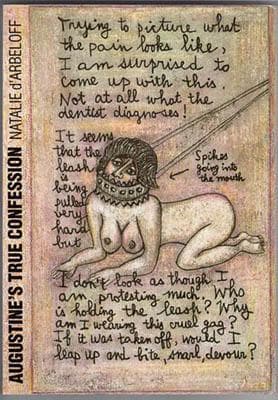 AUGUSTINE'S TRUE CONFESSION
NATALIE d'ARBELOFF
Trying to picture what
the pain looks like,
I am surprised to
come up with this.
Not at all what the
dentist diagnoses!
It seems
that the
leash
is
being
pulled
very
hard
but
Spikes
going into
the mouth
I don't look as though I
am protesting much. Who
is holding the leash? Why
am I wearing this cruel gag?
If it was taken off, would I
leap up and bite, snarl, devour?